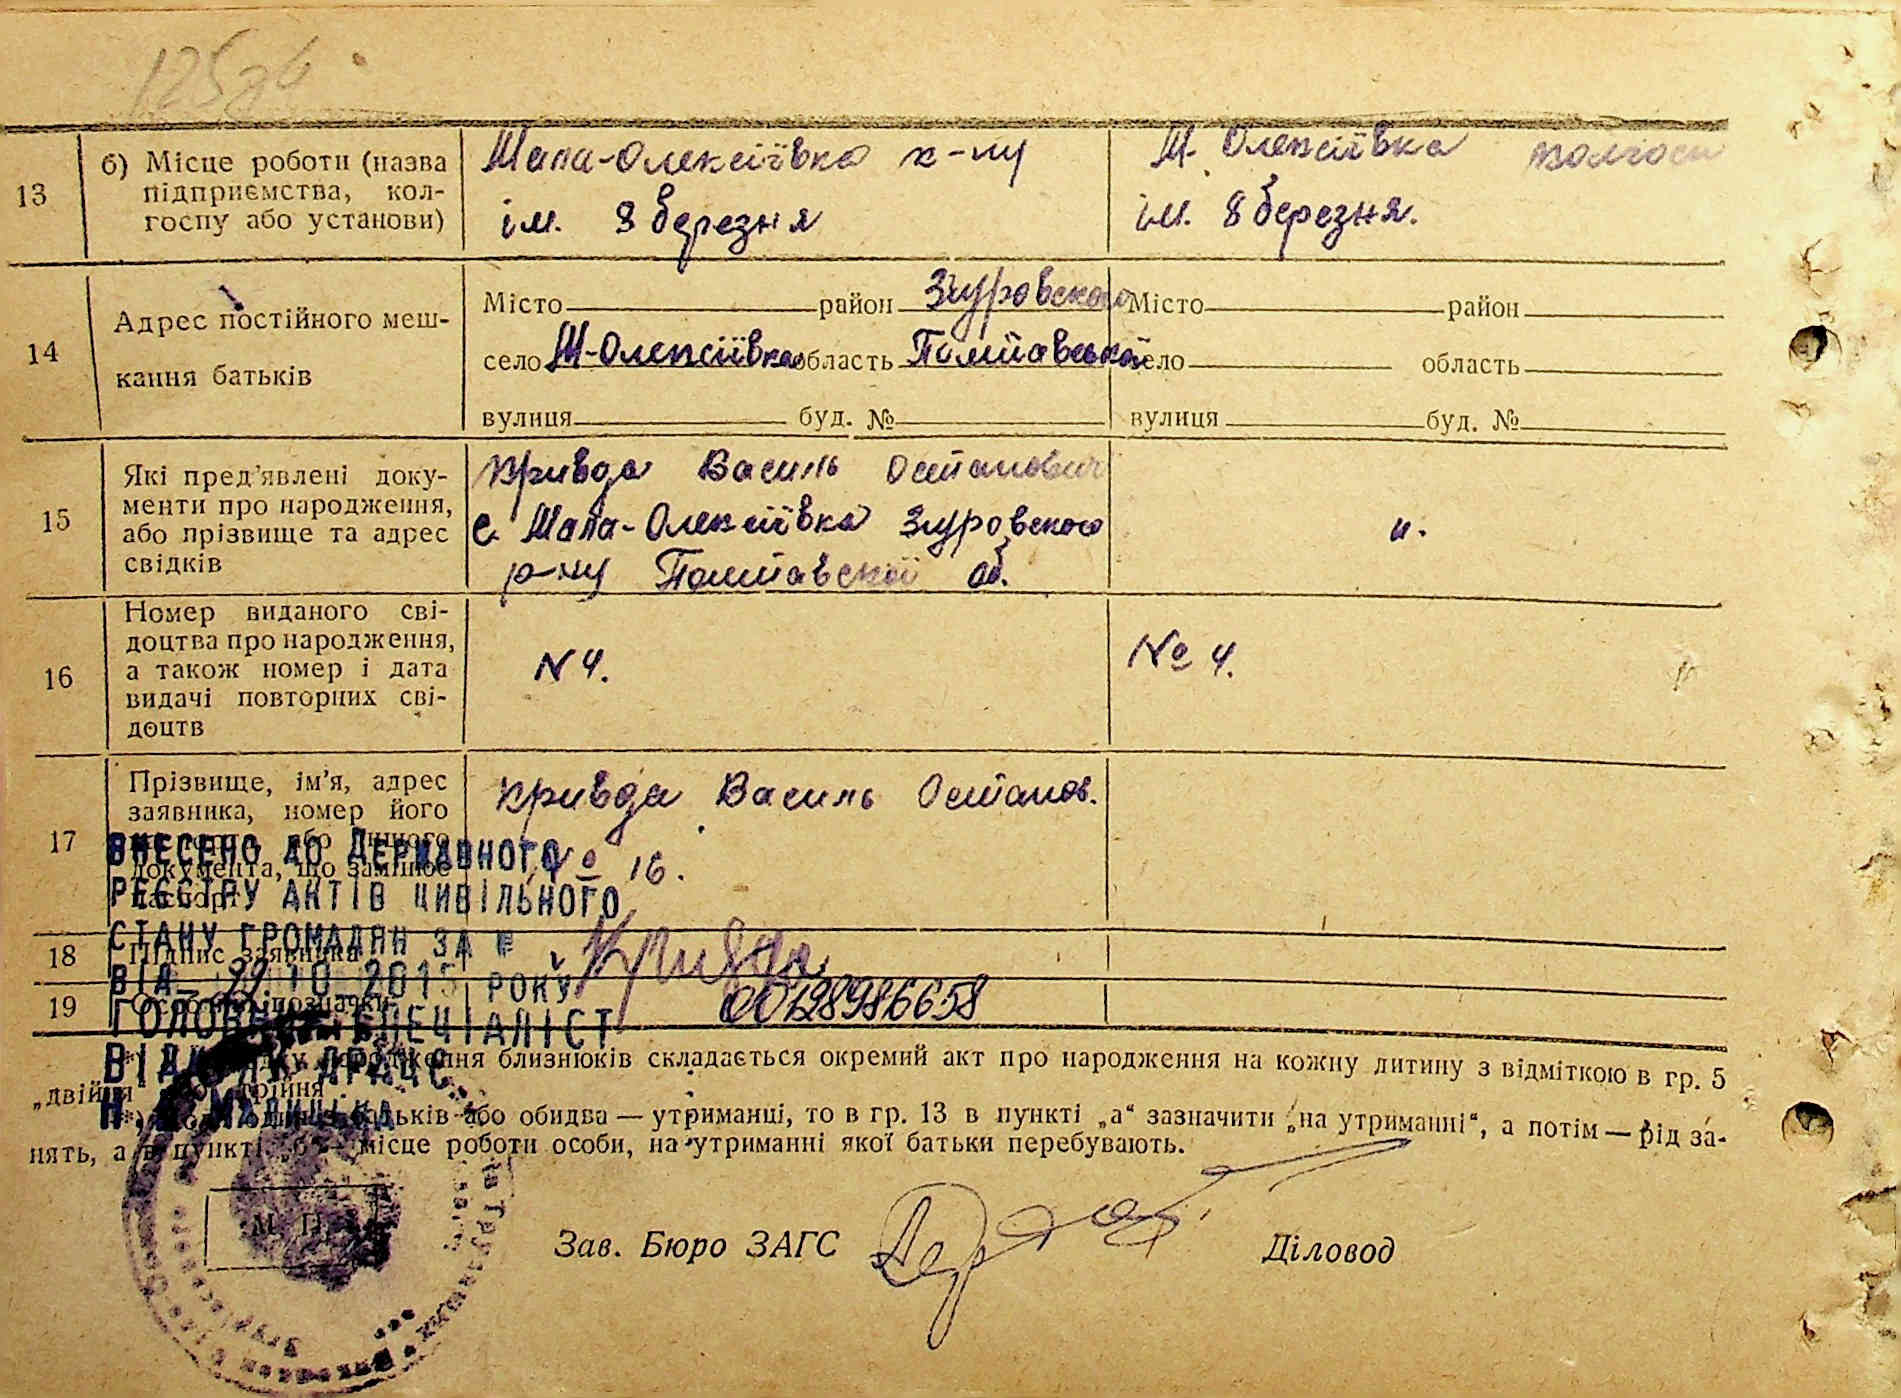 13
б) Місце роботи (назва
підприємства, кол-
госпу або установи)
Мала-Олексіївка к-пу
ім. 8 березня
М. Олексіївка колгосп
ім. 8 березня.
14
Адрес постійного меш-
кання батьків
Місто район Згуровского
село М-Олексіївка область Полтавської
вулиця буд. №
Місто район
село область
вулиця буд. №
15
Які пред'явлені доку-
менти про народження,
або прізвище та адрес
свідків
Кривда Василь Остапович
с. Мала-Олексіївка Згуровского
р-ну Полтавскої об.
16
Номер виданого сві-
доцтва про народження,
а також номер і дата
видачі повторних сві-
доцтв
N 4.
№ 4.
17
Прізвище, ім'я, адрес
заявника, номер його
документа, що замінює
паспорт
Кривда Василь Остапов.
№ 16.
18
Підпис заявника
Кривда
19
Особливі позначки
00128986658
ВНЕСЕНО ДО ДЕРЖАВНОГО
РЕЄСТРУ АКТІВ ЦИВІЛЬНОГО
СТАНУ ГРОМАДЯН ЗА №
ВІД 22.10.2015 РОКУ
ГОЛОВНИЙ СПЕЦІАЛІСТ
ВІДДІЛУ ДРАЦС
близнюків складається окремий акт про народження на кожну дитину з відміткою в гр. 5
„двійня
батьків або обидва — утриманці, то в гр. 13 в пункті „а“ зазначити „на утриманні“, а потім — рід за-
нять, а в пункті „б“ — місце роботи особи, на утриманні якої батьки перебувають.
М. П.
Зав. Бюро ЗАГС
Діловод